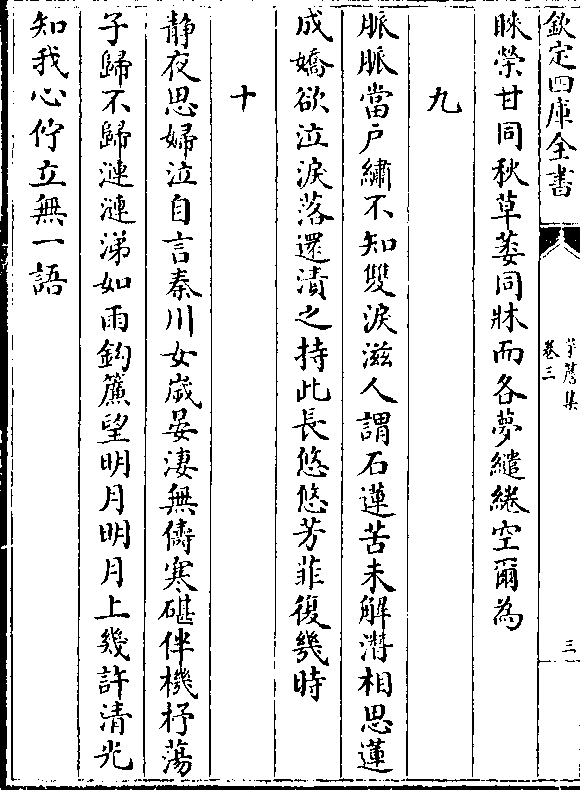 欽定四庫全書
茅簷集
卷三
三
睞榮甘同秋草萎同牀而各夢繾綣空爾為
九
脈脈當户繡不知雙淚滋人謂石蓮苦未解潸相思蓮
成嬌欲泣淚落還漬之持此長悠悠芳菲復幾時
十
静夜思婦泣自言秦川女歲晏凄無儔寒碪伴機杼蕩
子歸不歸漣漣涕如雨鈎簾望明月明月上幾許清光
知我心佇立無一語